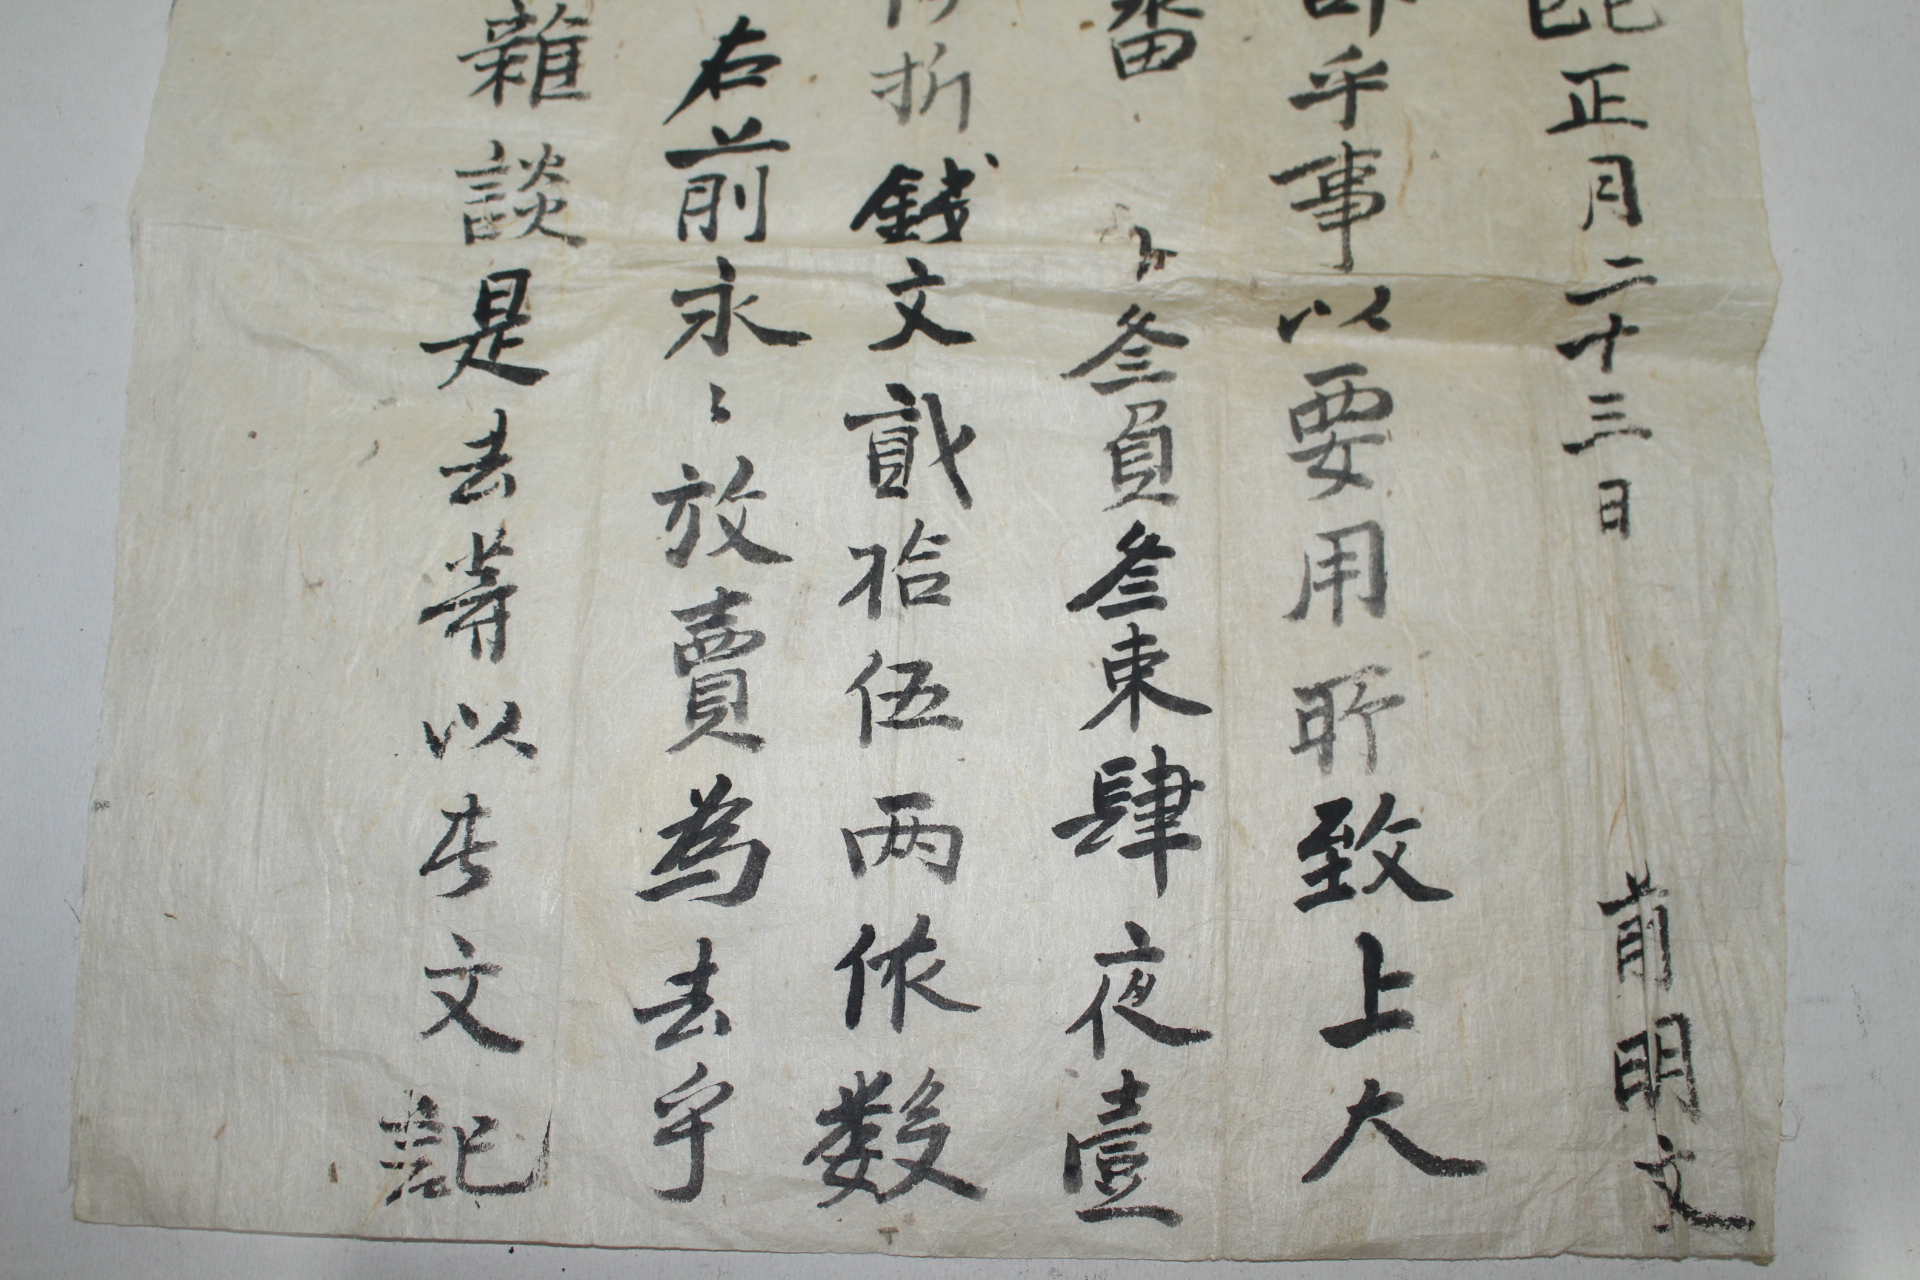 正月二十三日 前明文
乎事以要用所致上大
畓 卜叁負叁束肆夜壹
折錢文貳拾伍两依数
右前永〻放賣為去乎
雜談是去等以此文記